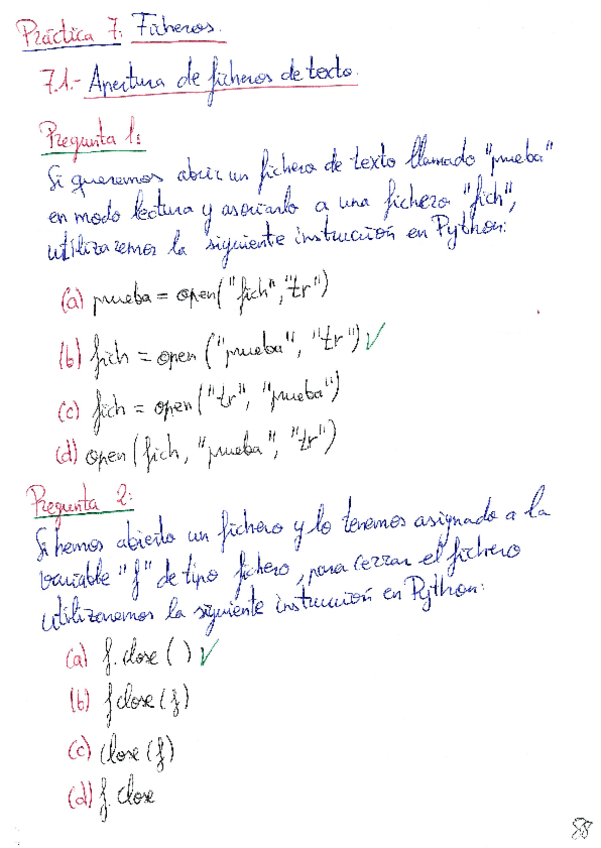 Práctica 7: Ficheros.
7.1.- Apertura de ficheros de texto.
Pregunta 1:
Si queremos abrir un fichero de texto llamado "prueba"
en modo lectura y asociarlo a una fichero "fich",
utilizaremos la siguiente instrucción en Python:
(a) prueba = open("fich", "tr")
(b) fich = open ("prueba", "tr") ✓
(c) fich = open ("tr", "prueba")
(d) open (fich, "prueba", "tr")
Pregunta 2:
Si hemos abierto un fichero y lo tenemos asignado a la
variable "f" de tipo fichero, para cerrar el fichero
utilizaremos la siguiente instrucción en Python:
(a) f.close () ✓
(b) fclose (f)
(c) close (f)
(d) f.close
88